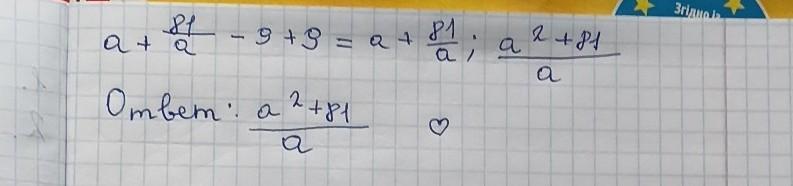 Згідно із
a + 81/a - 9 + 9 = a + 81/a ; a² + 81/a
Ответ: a² + 81/a ♡